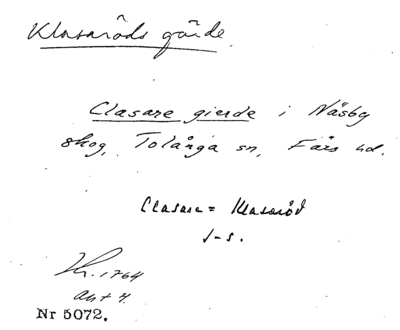 Klasaröds gärde.
Clasare gierde i Näsby
skog, Tolånga sn, Färs hd.
Clasare = Klasaröd
J-s.
Kr. 1764
akt 4.
Nr 5072.